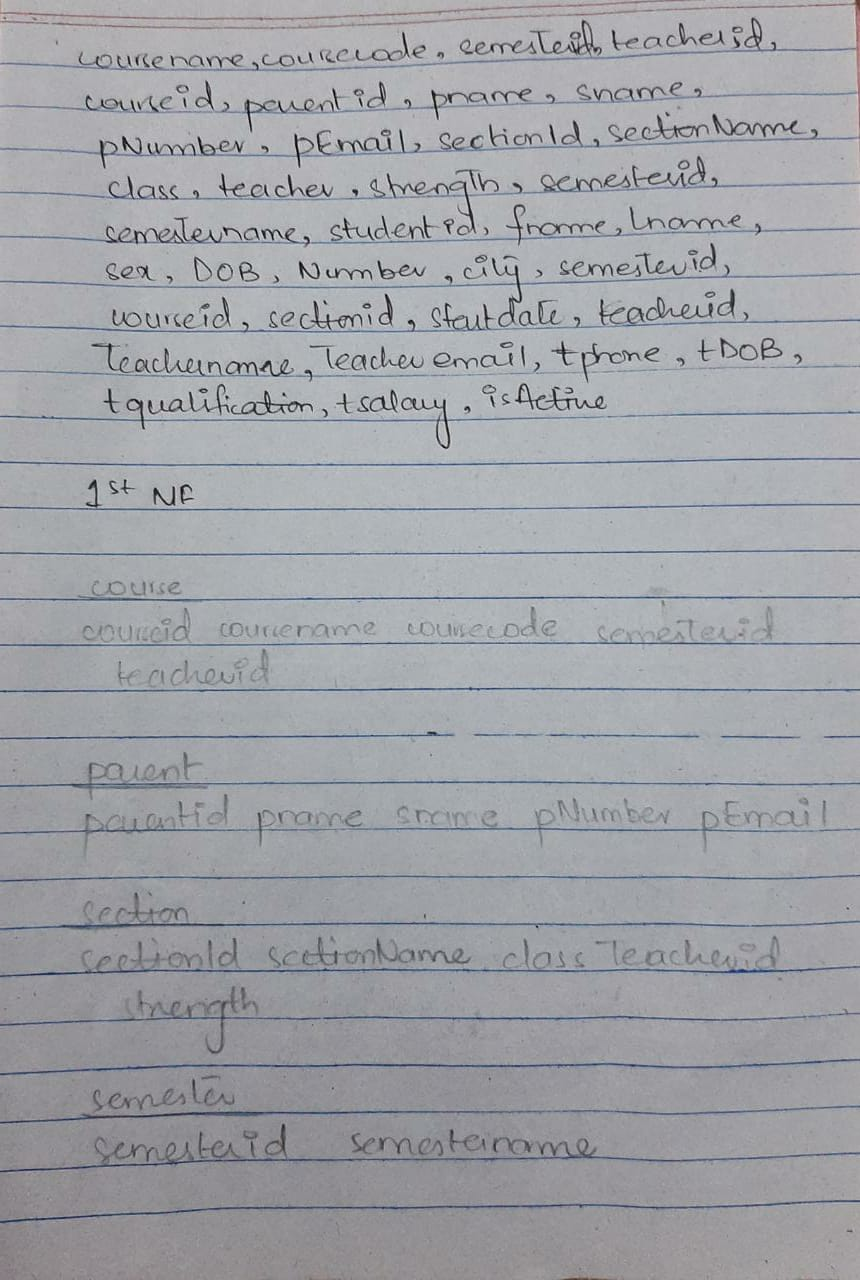 coursename, coursecode, semesterid, teacherid,
courseid, parent id, pname, sname,
pNumber, pEmail, sectionId, sectionName,
class, teacher, strength, semesterid,
semestername, student id, fname, Lname,
sex, DOB, Number, city, semesterid,
courseid, sectionid, startdate, teacherid,
Teachername, Teacher email, tphone, tDOB,
tqualification, tsalary, isActive
1st NF
course
courseid coursename coursecode semesterid
teacherid
parent
parentid pname sname pNumber pEmail
section
sectionId sectionName class Teacherid
strength
semester
semesterid semestername